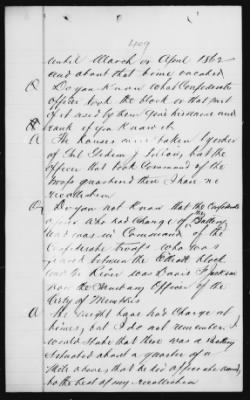 409
until March or April 1862
and about that time vacated
Q Do you know what Confederate
officer took the block or that part
of it used by them Give his name and
rank if you know it.
A The houses were taken by order
of Gnl Gideon J Pillow, but the
officer that took Command of the
troops quartered there I have no
recollection
Q Do you not know that the Confederate
officer who had Charge of the Battery
and was in Command of the
Confederate troops who was
between the Elliott block
and the River was
now the Sanitary Officer of the
City of Memphis
A He might have had Charge at
times, but I do not remember. I
would state that there was a Battery
Situated about a quarter of a
Mile above that he did officer around,
to the best of my recollection